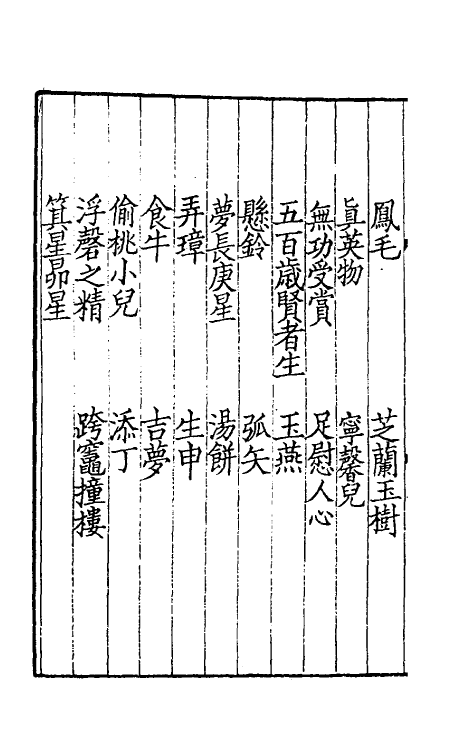 鳳毛　芝蘭玉樹
眞英物　寧馨兒
無功受賞　足慰人心
五百歳賢者生　玉燕
懸鈴　弧矢
夢長庚星　湯餅
弄璋　生申
食牛　吉夢
偷桃小兒　添丁
浮磬之精　跨竈撞樓
箕星昴星